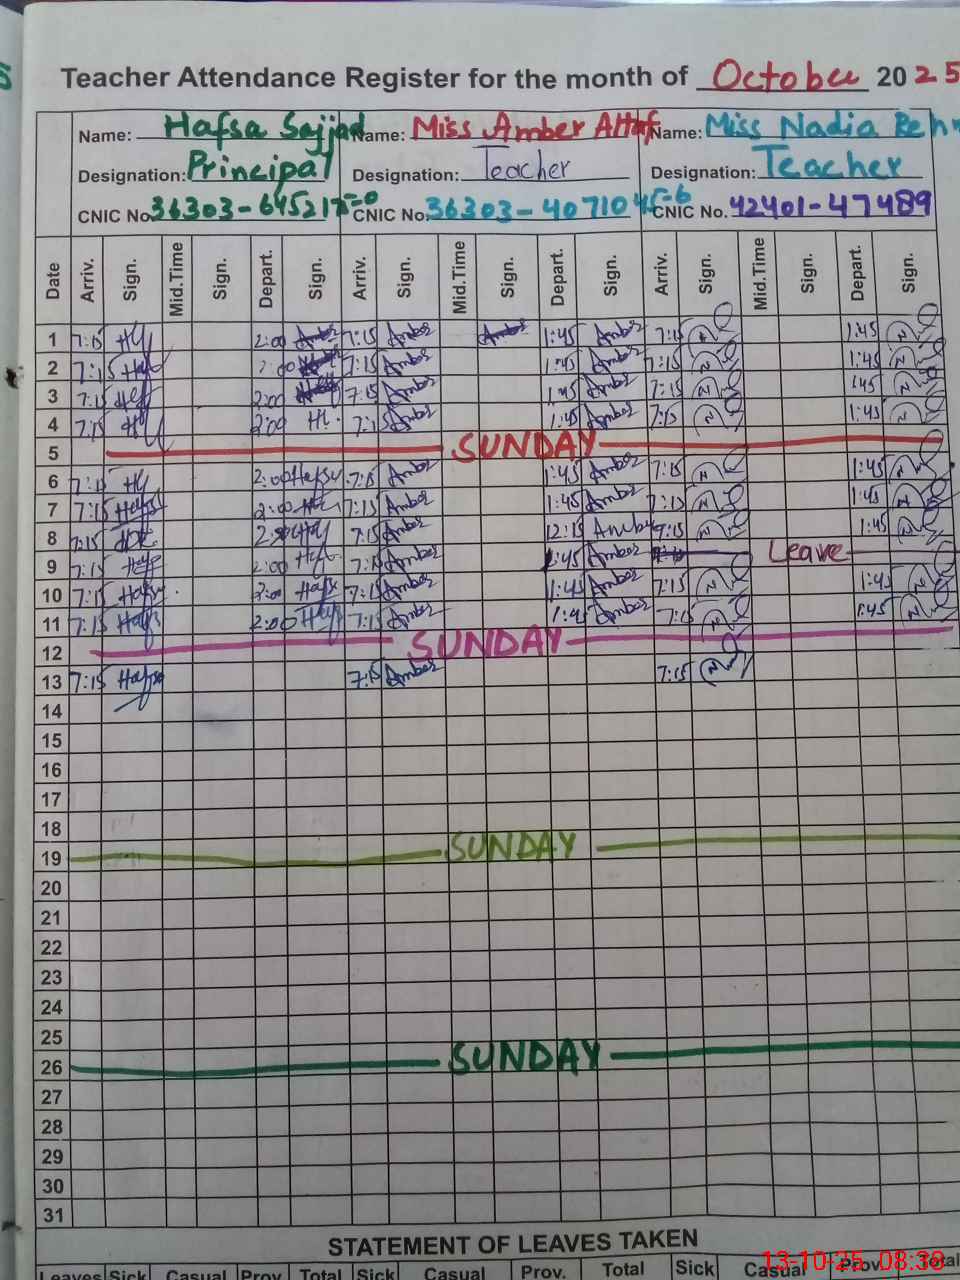 Teacher Attendance Register for the month of October 2025
Name: Hafsa Sajjad Name: Miss Amber Altaf Name: Miss Nadia Reh
Designation: Principal Designation: Teacher Designation: Teacher
CNIC No. 36303-645217 CNIC No. 36303-407104 CNIC No. 42401-47489
Date Arriv. Sign. Mid.Time Sign. Depart. Sign. Arriv. Sign. Mid.Time Sign. Depart. Sign. Arriv. Sign. Mid.Time Sign. Depart. Sign.
1 7:15 2:00 7:15 Amber 1:45 Amber 7:15 1:45
2 7:15 2:00 7:15 Amber 1:45 Amber 7:15 1:45
3 7:15 2:00 7:15 Amber 1:45 Amber 7:15 1:45
4 7:15 2:00 7:15 Amber 1:45 Amber 7:15 1:45
5 SUNDAY
6 7:15 2:00 Hafsa 7:15 Amber 1:45 Amber 7:15 1:45
7 7:15 Hafsa 2:00 7:15 Amber 1:45 Amber 7:15 1:45
8 7:15 7:15 Amber 12:15 Amber 7:15 1:45
9 7:15 2:00 7:15 Amber 1:45 Amber Leave
10 7:15 Hafsa 2:00 Hafsa 7:15 Amber 1:45 Amber 7:15 1:45
11 7:15 Hafsa 2:00 7:15 Amber 1:45 Amber 7:15 1:45
12 SUNDAY
13 7:15 Hafsa 7:15 Amber 7:15
14
15
16
17
18
19 SUNDAY
20
21
22
23
24
25
26 SUNDAY
27
28
29
30
31
STATEMENT OF LEAVES TAKEN
Leaves Sick Casual Prov. Total Sick Casual Prov. Total Sick Casual Prov. Total
13-10-25 08:38